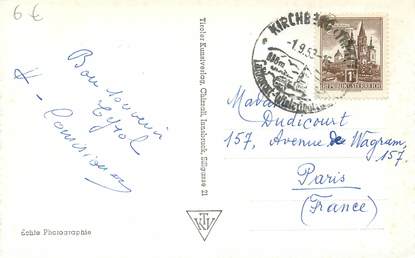 6€
Bon souvenir
Tyrol
Tiroler Kunstverlag, Chizzali, Innsbruck, Sillgasse 21
KIRCHBERG
1.9.59
REPUBLIK ÖSTERREICH
Dudicourt
157, Avenue de Wagram,
157,
Paris
(France)
Echte Photographie